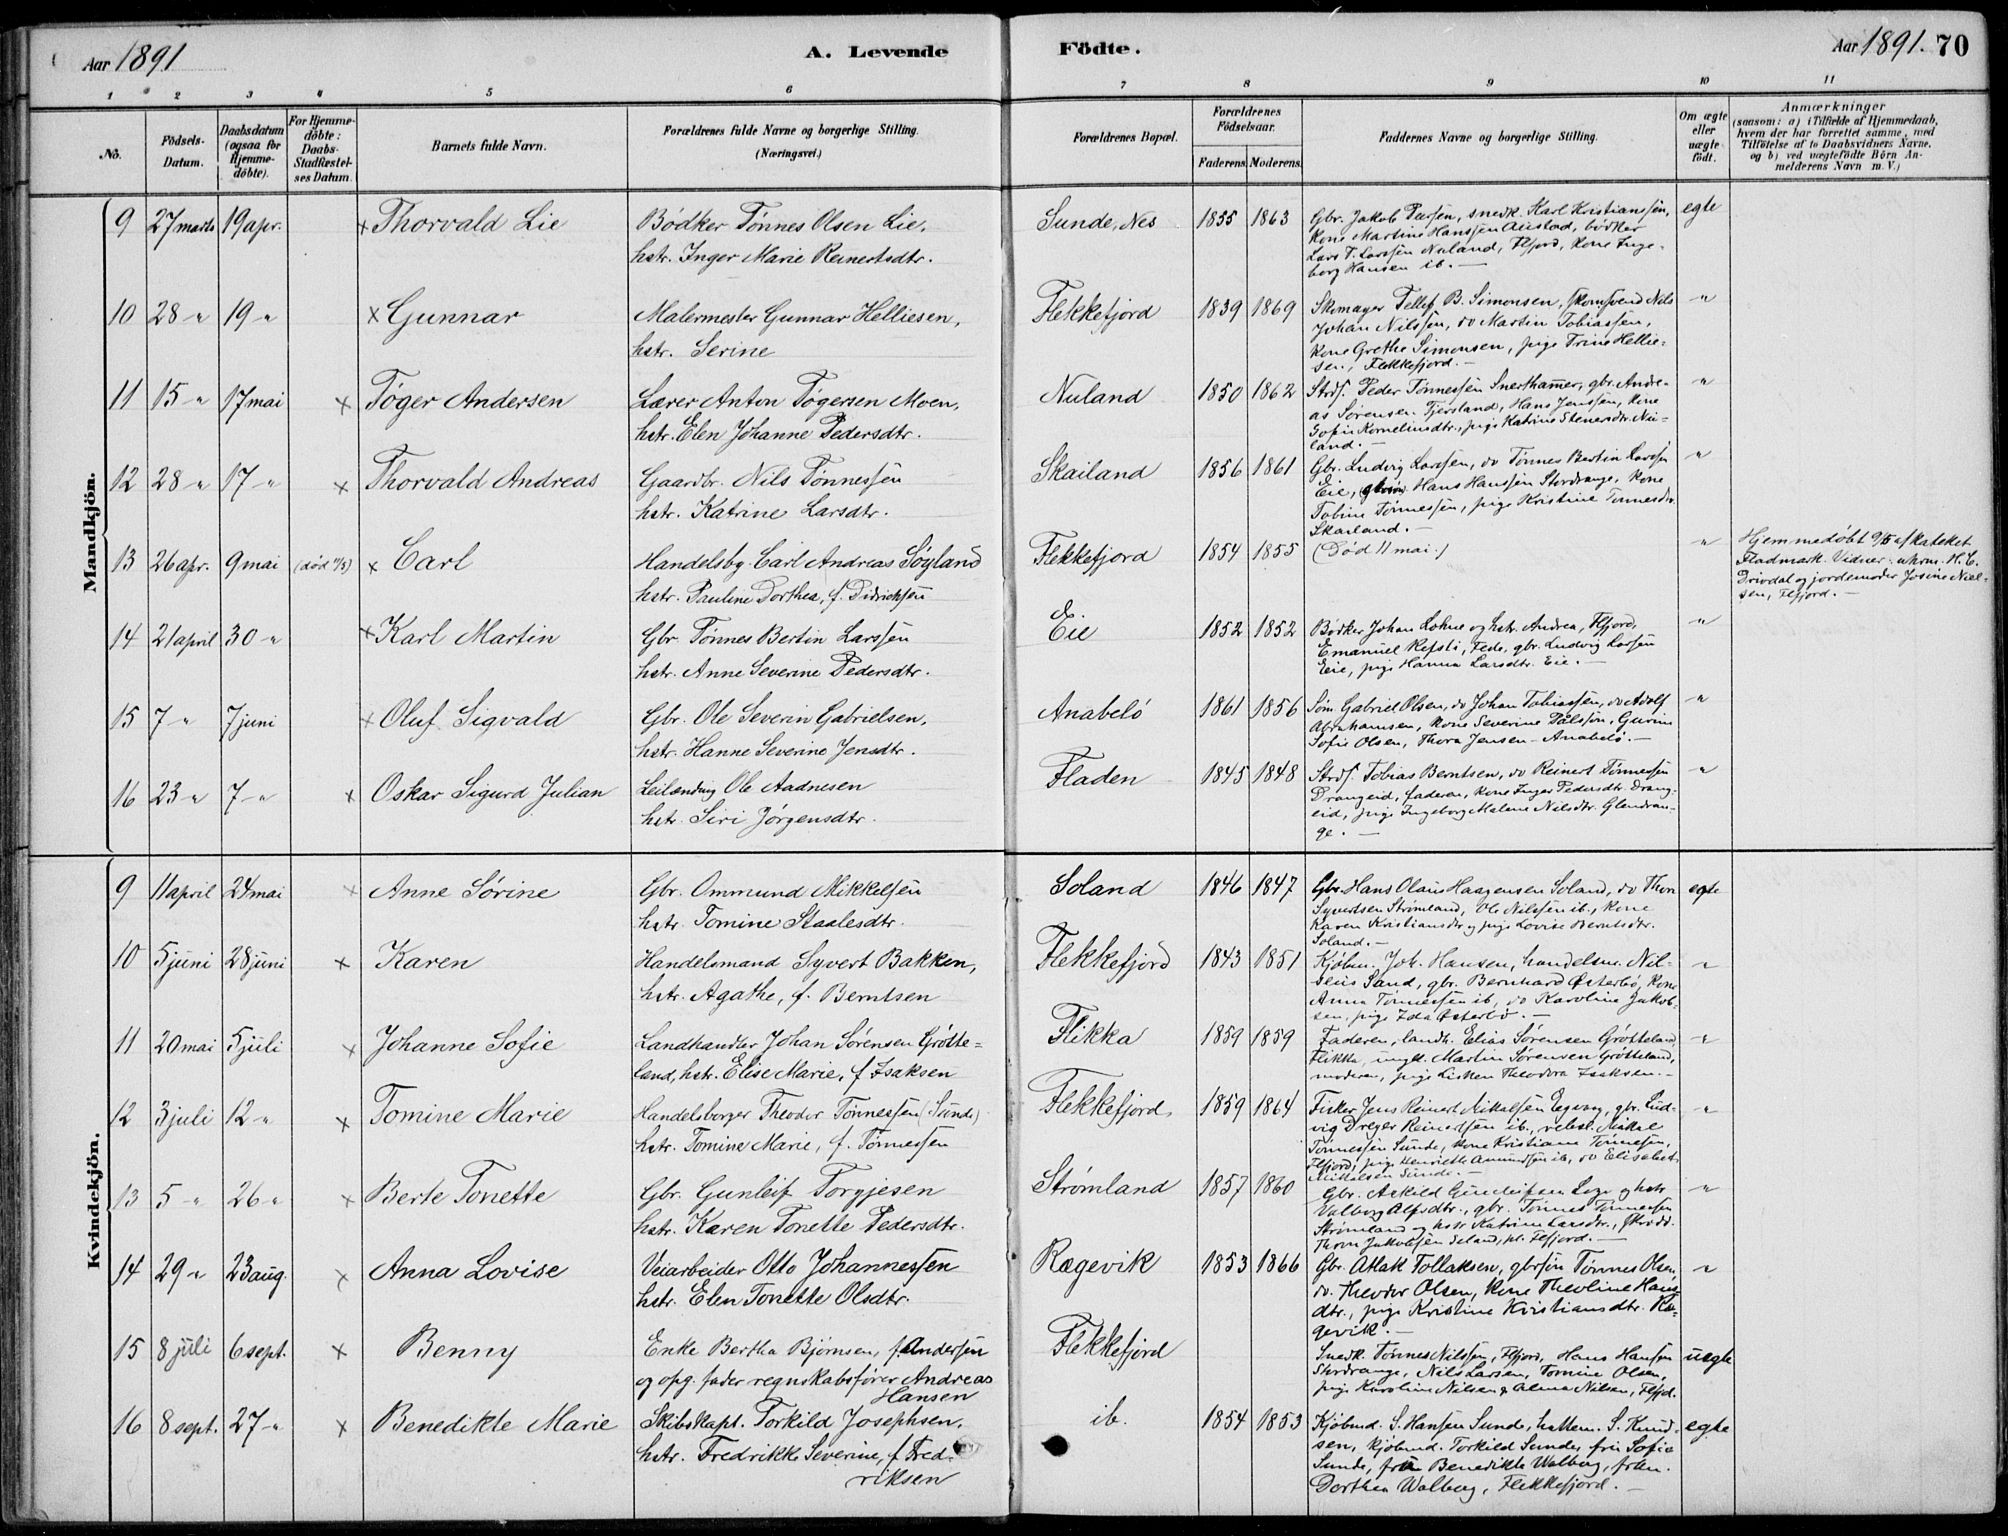 Aar 1891 A. Levende Fødte. Aar 1891. 70
1 2 3 4 5 6 7 8 9 10 11
No. Födsels-Datum. Daabsdatum (ogsaa for Hjemmedöbte). For Hjemmedöbte: Daabs-Stadfæstelses Datum. Barnets fulde Navn. Forældrenes fulde Navne og borgerlige Stilling. (Næringsvei.) Forældrenes Bopæl. Forældrenes Födselsaar. Faderens. Moderens. Faddernes Navne og borgerlige Stilling. Om ægte eller uægte födt. Anmærkninger (saasom: a) i Tilfælde af Hjemmedaab, hvem der har forrettet samme, med Tilföielse af to Daabsvidners Navne, og b) ved uægtefödte Börn Anmelderens Navn m. V.)
Mandkjön.
9 27 marts 19 apr. × Thorvald Lie
Bødker Tønnes Olsen Lie,
hstr. Inger Marie Reinertsdtr.
Sunde, Nes 1855 1863
Gbr. Jakob Persen, snedk. Karl Kristianssen,
kone Martine Hanssen Austad, bødker
Lars T. Larssen Nuland, Ffjord, kone Inge-
borg Hansen ib. —
egte
10 28 " 19 " × Gunnar
Malermester Gunnar Helliesen,
hstr. Serine
Flekkefjord 1839 1869
Skomager Tellef B. Simonsen, skomsvend Nils
Johan Nilssen, do Martin Tobiassen,
kone Grethe Simonsen, pige Trine Hellie-
sen, Flekkefjord. —
"
11 15 " 17 mai × Tøger Andersen
Lærer Anton Tøgersen Moen,
hstr. Elen Johanne Pedersdtr.
Nuland 1850 1862
Strds. Peder Tønnessen Snerthammer, gbr. Andre-
as Sørensen Tjersland, Hans Jenssen, kone
Sofie Korneliusdtr., pige Katrine Stenersdtr. Nu-
land. —
"
12 28 " 17 " × Thorvald Andreas
Gaardbr. Nils Tønnessen
hstr. Katrine Larsdtr.
Skailand 1856 1861
Gbr. Ludvig Larssen, do Tønnes Bertin Larssen
Eie, Hans Hanssen Stordrange, kone
Tobine Tønnessen, pige Kristine Tønnesdtr.
Skailand. —
"
13 26 apr. 9 mai (død 11/5) × Carl
Handelsbg. Carl Andreas Søyland
hstr. Pauline Dorthea, f. Didrichsen
Flekkefjord 1854 1855
(Død 11 mai.)
"
Hjemmedøbt 9/5 af kateket
Fladmark. Vidner: uhrm. H. C.
Drivdal og jordemoder Josine Niel-
sen, Ffjord. —
14 21 april 30 " × Karl Martin
Gbr. Tønnes Bertin Larssen
hstr. Anne Severine Pedersdtr.
Eie 1852 1852
Bødker Johan Lohne og hstr. Andrea, Ffjord,
Emanuel Refsti, Feda, gbr. Ludvig Larsen
Eie, pige Hanna Larsdtr. Eie. —
"
15 7 " 7 juni × Oluf Sigvald
Gbr. Ole Severin Gabrielsen,
hstr. Hanne Severine Jensdtr.
Anabelø 1861 1856
Søm. Gabriel Olsen, do Johan Tobiassen, do Adolf
Abrahamsen, kone Severine Pålsson, Gurine
Sofie Olsen, Thora Jensen - Anabelø. —
"
16 23 " 7 " × Oskar Sigurd Julian
Leilænding Ole Aadnesen
hstr. Siri Jørgensdtr.
Fladen 1845 1848
Strds. Tobias Berntsen, do Reinert Tønnessen
Drangeid, faderen, kone Inger Pedersdtr. Drang-
eid, pige Ingeborg Malene Nilsdtr. Glendran-
ge. —
"
Kvindekjön.
9 11 april 24 mai × Anne Sørine
Gbr. Ommund Mikkelsen
hstr. Tomine Staalesdtr.
Soland 1846 1847
Gbr. Hans Olaus Haagensen Soland, do Thore
Syvertsen Strømland, Ole Nilssen ib., kone
Karen Kristiansdtr. og pige Lovise Berntsdtr.
Soland. —
egte
10 5 juni 28 juni × Karen
Handelsmand Syvert Bakken,
hstr. Agathe, f. Berntsen
Flekkefjord 1843 1851
Kjøbm. Joh. Hansen, handelsm. Nil-
seus Sand, gbr. Bernhard Østerbø, kone
Anna Tønnessen ib, do Karoline Jakob-
sen, pige Ida Østerbø. —
"
11 20 mai 5 juli × Johanne Sofie
Landhandler Johan Sørensen Grøtte-
land, hstr. Elise Marie, f. Isaksen
Flikka 1859 1859
Faderen, landh. Elias Sørensen Grøtteland,
Flikka, ungk. Martin Sørensen Grøtteland,
moderen, pige Lisken Theodora Isaksen. —
"
12 3 juli 12 " × Tomine Marie
Handelsborger Theodor Tønnessen (Sunde)
hstr. Tomine Marie, f. Tønnessen
Flekkefjord 1859 1864
Fisker Jens Reinert Mikalsen Egvaag, gbr. Lud-
vig Dreyer Reinertsen ib., Mikal
Tønnessen Sunde, kone Kristiane Tønnessen,
Ffjord, pige Henriette Amundsen ib, do Elisabet
Mikkelsen Sunde. —
"
13 5 " 26 " × Berte Tonette
Gbr. Gunleif Torgjesen
hstr. Karen Tonette Pedersdtr.
Strømland 1857 1860
Gbr. Askild Gunleifsen Loge og hstr
Valborg Alfsdtr., gbr. Tønnes Tønnessen
Strømland og hstr Katrine Larsdtr.,
Thore Jakobsen Ffjord. —
"
14 29 " 23 aug. × Anna Lovise
Veiarbeider Otto Johannessen
hstr. Elen Tonette Olsdtr.
Rægevik 1853 1866
Gbr. Atlak Tollaksen, gbrsøn Tønnes Olsen,
do. Theodor Olsen, kone Theoline Hans-
dtr., pige Kristine Kristiansdtr. Ræ-
gevik. —
"
15 8 juli 6 sept. × Benny
Enke Bertha Bjørnsen, f. Andersen
og opg. fader regnskabsfører Andreas
Hansen
Flekkefjord
Snedk. Tønnes Nilssen, Ffjord, Hans Hansen
Stordrange, Nils Larsen, Tomine Olsen,
pige Karoline Nilsen & Alma Nilsen, Ffjd.
uegte
16 8 sept. 27 " × Benedikte Marie
Skibskapt. Torkild Josephsen,
hstr. Fredrikke Severine, f. Fred-
riksen
ib. 1854 1853
Kjøbmd. S. Hansen Sunde, hattem. S. Knud-
sen, kjøbmd. Torkild Sunde, fru Sofie
Sunde, frøken Benedikte Walborg, frøken
Dorthea Walborg, Flekkefjord. —
egte